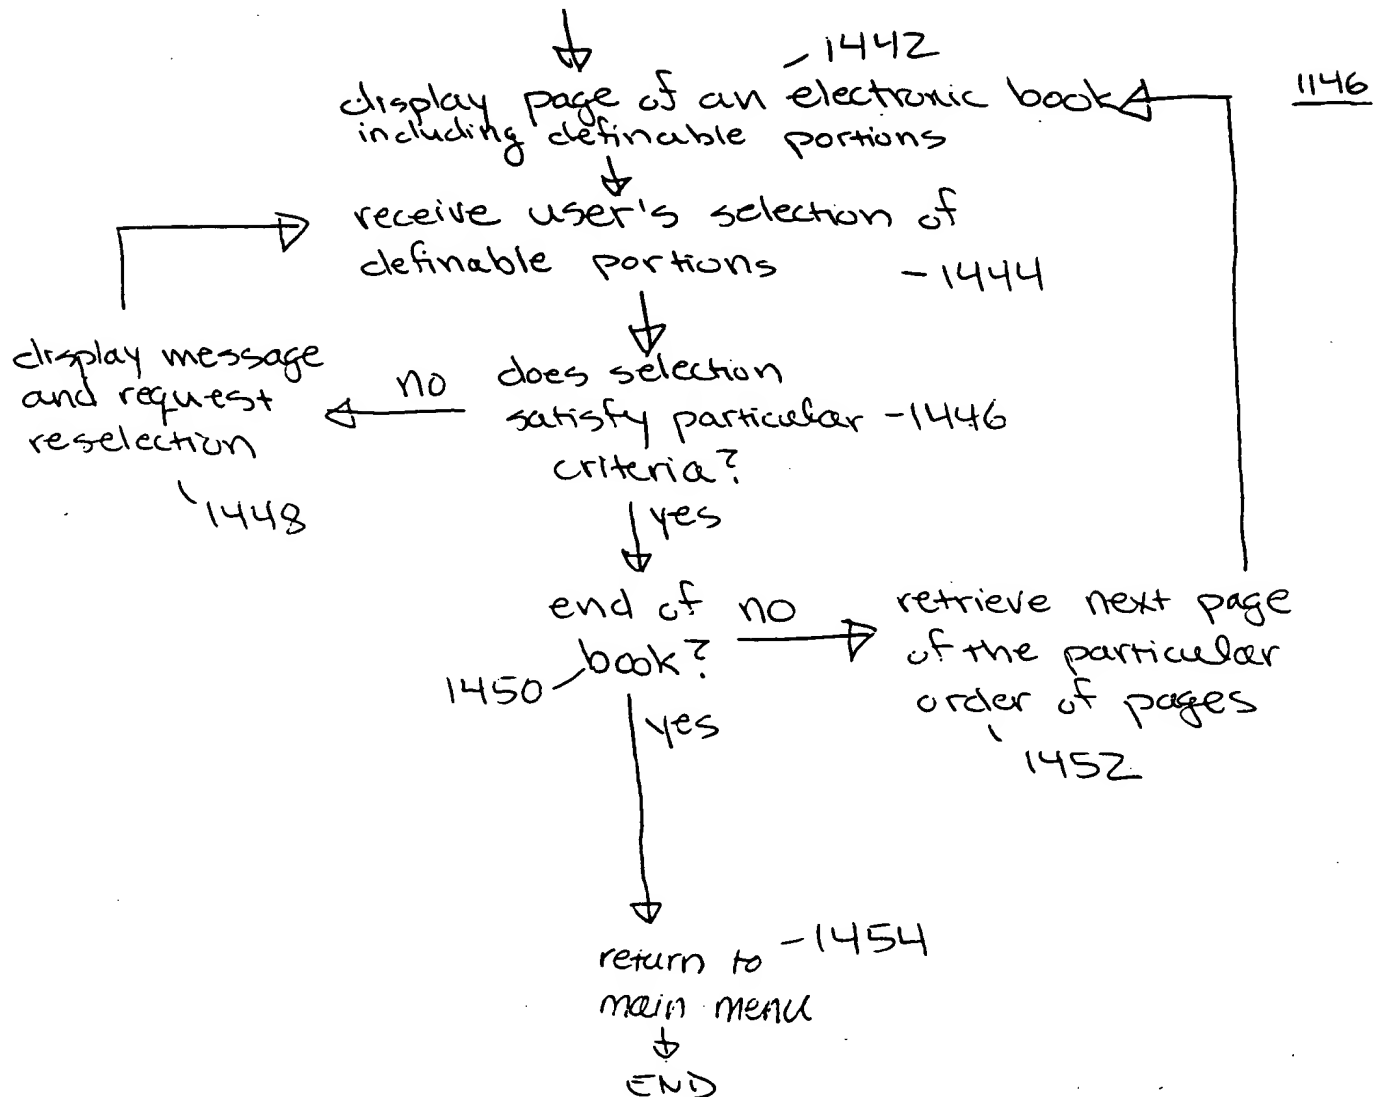 1442
1146
display page of an electronic book
including definable portions
receive user's selection of
definable portions
-1444
display message
and request
reselection
1448
no
does selection
satisfy particular -1446
criteria?
yes
end of
book?
1450
no
retrieve next page
of the particular
order of pages
1452
yes
return to -1454
main menu
END